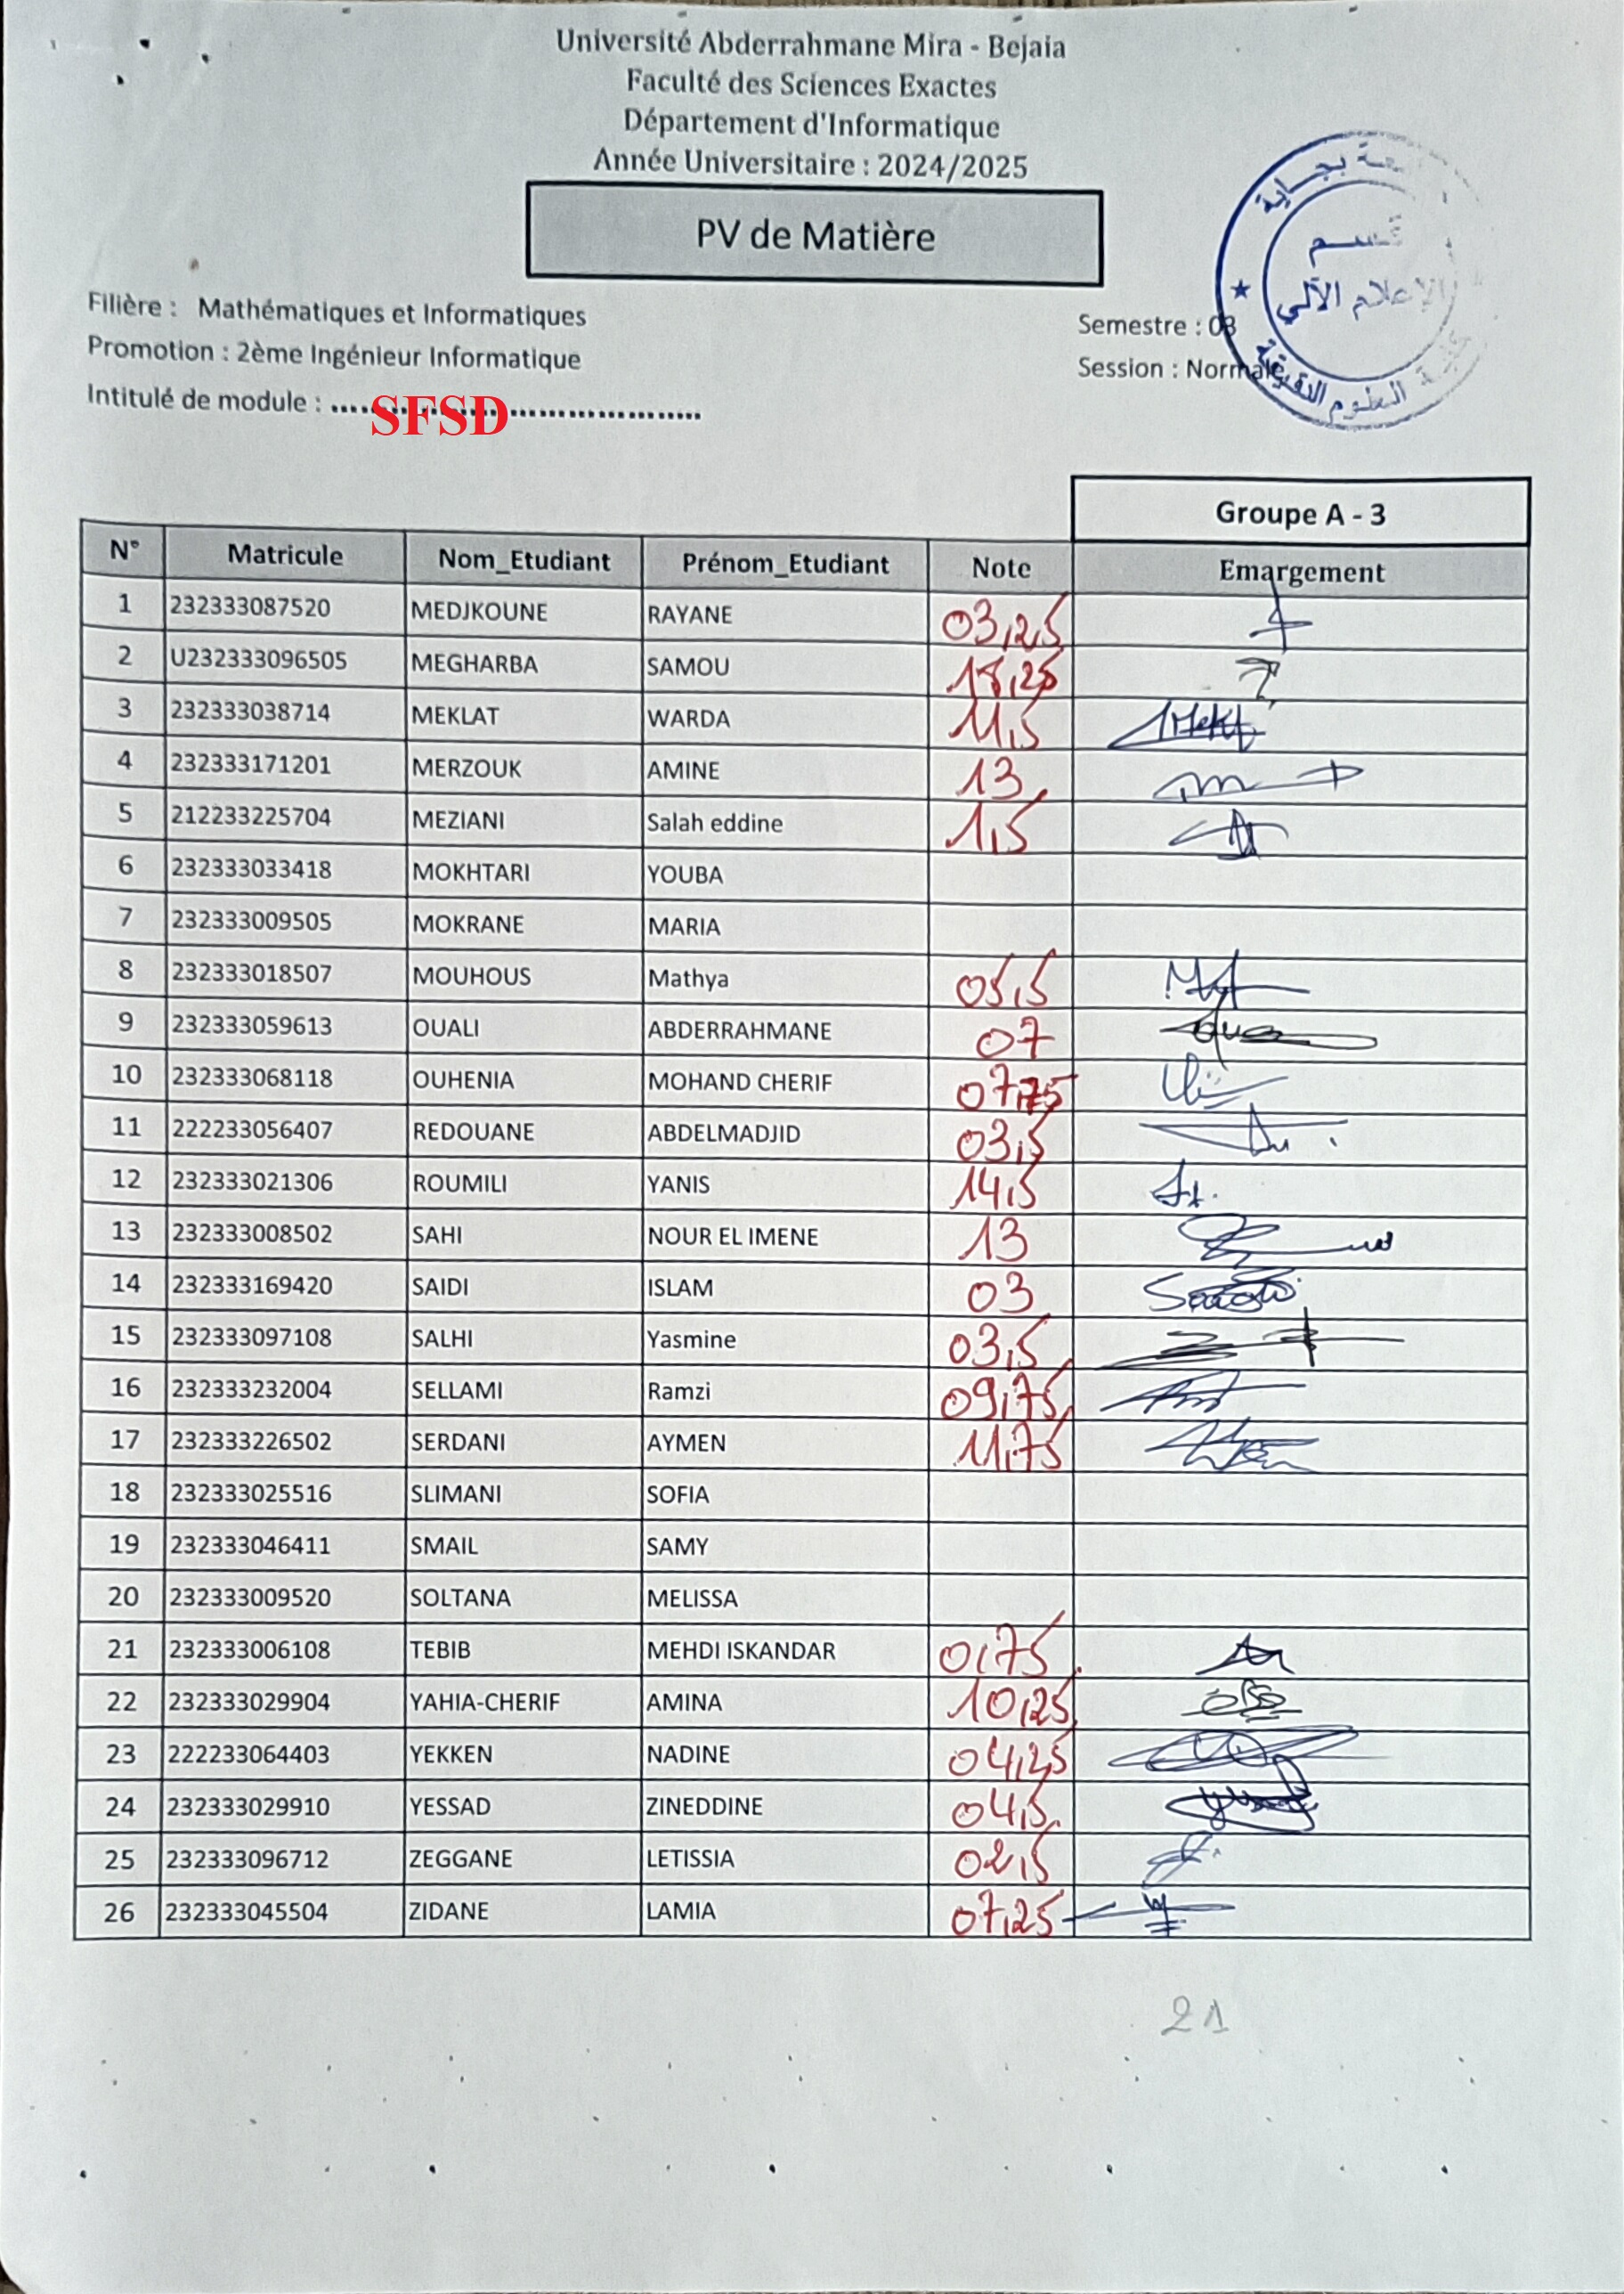 Université Abderrahmane Mira - Bejaia
Faculté des Sciences Exactes
Département d'Informatique
Année Universitaire : 2024/2025
PV de Matière
جامعة بجاية
قسم
الإعلام الآلي
كلية العلوم الدقيقة
Filière : Mathématiques et Informatiques
Semestre : 03
Promotion : 2ème Ingénieur Informatique
Session : Normale
Intitulé de module : SFSD
Groupe A - 3
N° Matricule Nom_Etudiant Prénom_Etudiant Note Emargement
1 232333087520 MEDJKOUNE RAYANE 03,25
2 U232333096505 MEGHARBA SAMOU
3 232333038714 MEKLAT WARDA 11,5
4 232333171201 MERZOUK AMINE 13
5 212233225704 MEZIANI Salah eddine 1,5
6 232333033418 MOKHTARI YOUBA
7 232333009505 MOKRANE MARIA
8 232333018507 MOUHOUS Mathya 05,5
9 232333059613 OUALI ABDERRAHMANE 07
10 232333068118 OUHENIA MOHAND CHERIF 07,75
11 222233056407 REDOUANE ABDELMADJID 03,5
12 232333021306 ROUMILI YANIS 14,5
13 232333008502 SAHI NOUR EL IMENE 13
14 232333169420 SAIDI ISLAM 03
15 232333097108 SALHI Yasmine 03,5
16 232333232004 SELLAMI Ramzi 09,75
17 232333226502 SERDANI AYMEN 11,75
18 232333025516 SLIMANI SOFIA
19 232333046411 SMAIL SAMY
20 232333009520 SOLTANA MELISSA
21 232333006108 TEBIB MEHDI ISKANDAR 0,75
22 232333029904 YAHIA-CHERIF AMINA 10,25
23 222233064403 YEKKEN NADINE 04,25
24 232333029910 YESSAD ZINEDDINE 04,5
25 232333096712 ZEGGANE LETISSIA 02,5
26 232333045504 ZIDANE LAMIA 07,25
21